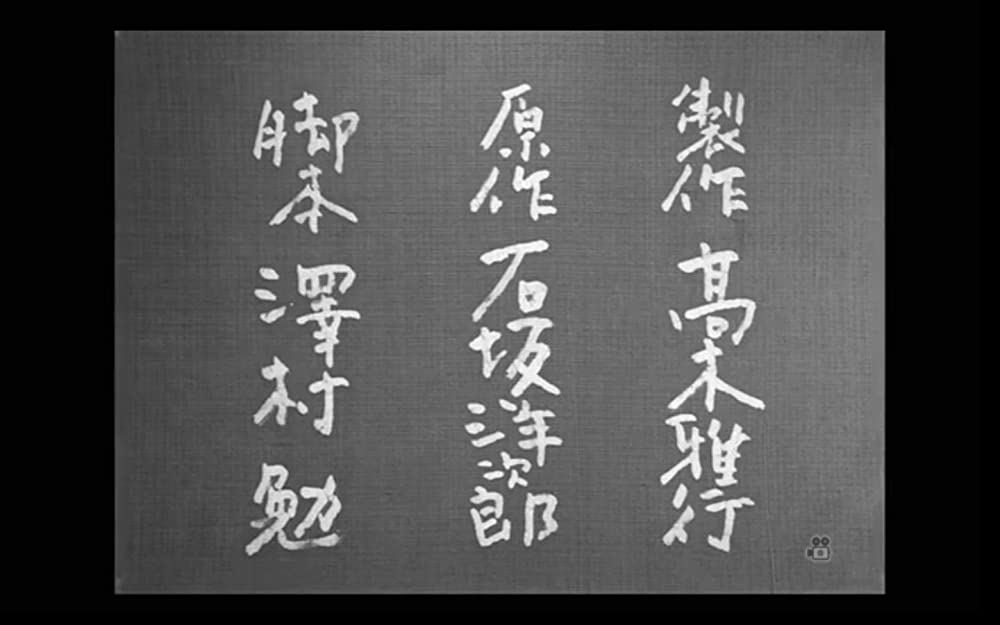 製作 高木雅行
原作 石坂洋次郎
脚本 澤村勉